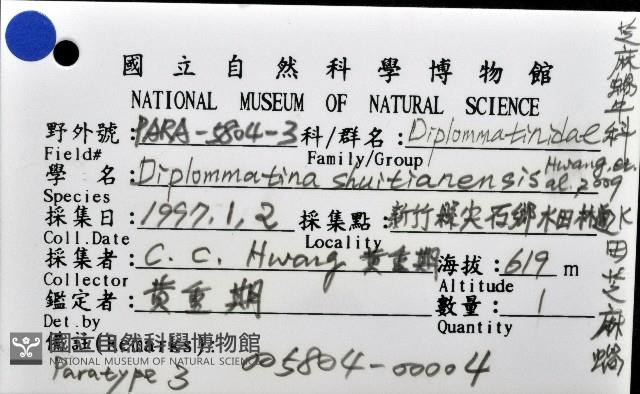 國立自然科學博物館
NATIONAL MUSEUM OF NATURAL SCIENCE
野外號：PARA-5804-3 科/群名：Diplommatinidae
Field# Family/Group
學 名：Diplommatina shuitianensis Hwang, et. al., 2009
Species
採集日：1997.1.2 採集點：新竹縣尖石鄉水田林道
Coll.Date Locality
採集者：C. C. Hwang 黃重期 海拔：619 m
Collector Altitude
鑑定者：黃重期 數量：1
Det.by Quantity
(Remarks):
國立自然科學博物館
NATIONAL MUSEUM OF NATURAL SCIENCE
Paratype 3 005804-00004
芝麻蝸牛科
水田芝麻蝸